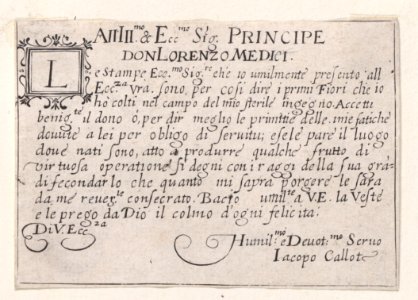 All Ill.mo & Ecc.mo Sig. PRINCIPE
DON LORENZO MEDICI.
Le Stampe Ecc.mo Sig.re ch'io umilmente presento all
Ecc.za Vra. sono, per cosi dire i primi Fiori che io
hò colti nel campo del mio sterile ingegno. Accetti
benig.te il dono ò, per dir meglio le primitie delle mie fatiche
devute a lei per obligo di servitu; e se le pare il luogo
dove nati sono, atto a produrre qualche frutto di
virtuosa operatione si degni con i raggi della sua gra:
di fecondarlo che quanto mi saprà porgere le sarà
da me rever.te consecrato. Bacio umil.te a V.E. la Veste
e le prego da Dio il colmo d'ogni felicità.
Di V. Ecc.za
Humil.mo e Devot.mo Servo
Iacopo Callot